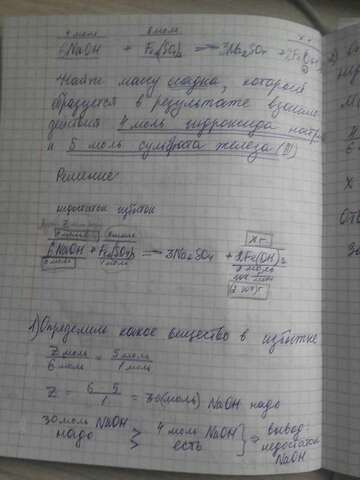 4 моль 5 моль x г
6NaOH + Fe2(SO4)3 → 3Na2SO4 + 2Fe(OH)3
Найти массу осадка, который
образуется в результате взаимо
действия 4 моль гидроксида натр
и 5 моль сульфата железа (III)
Решение:
недостаток избыток
Z моль
4 моль 5 моль x г
6NaOH + Fe2(SO4)3 → 3Na2SO4 + 2Fe(OH)3
6 моль 1 моль 2 моль
1) Определим какое вещество в избытке
Z моль / 6 моль = 5 моль / 1 моль
Z = 6·5 / 1 = 30 (моль) NaOH надо
30 моль NaOH надо > 4 моль NaOH есть } ⇒ вывод: недостаток NaOH